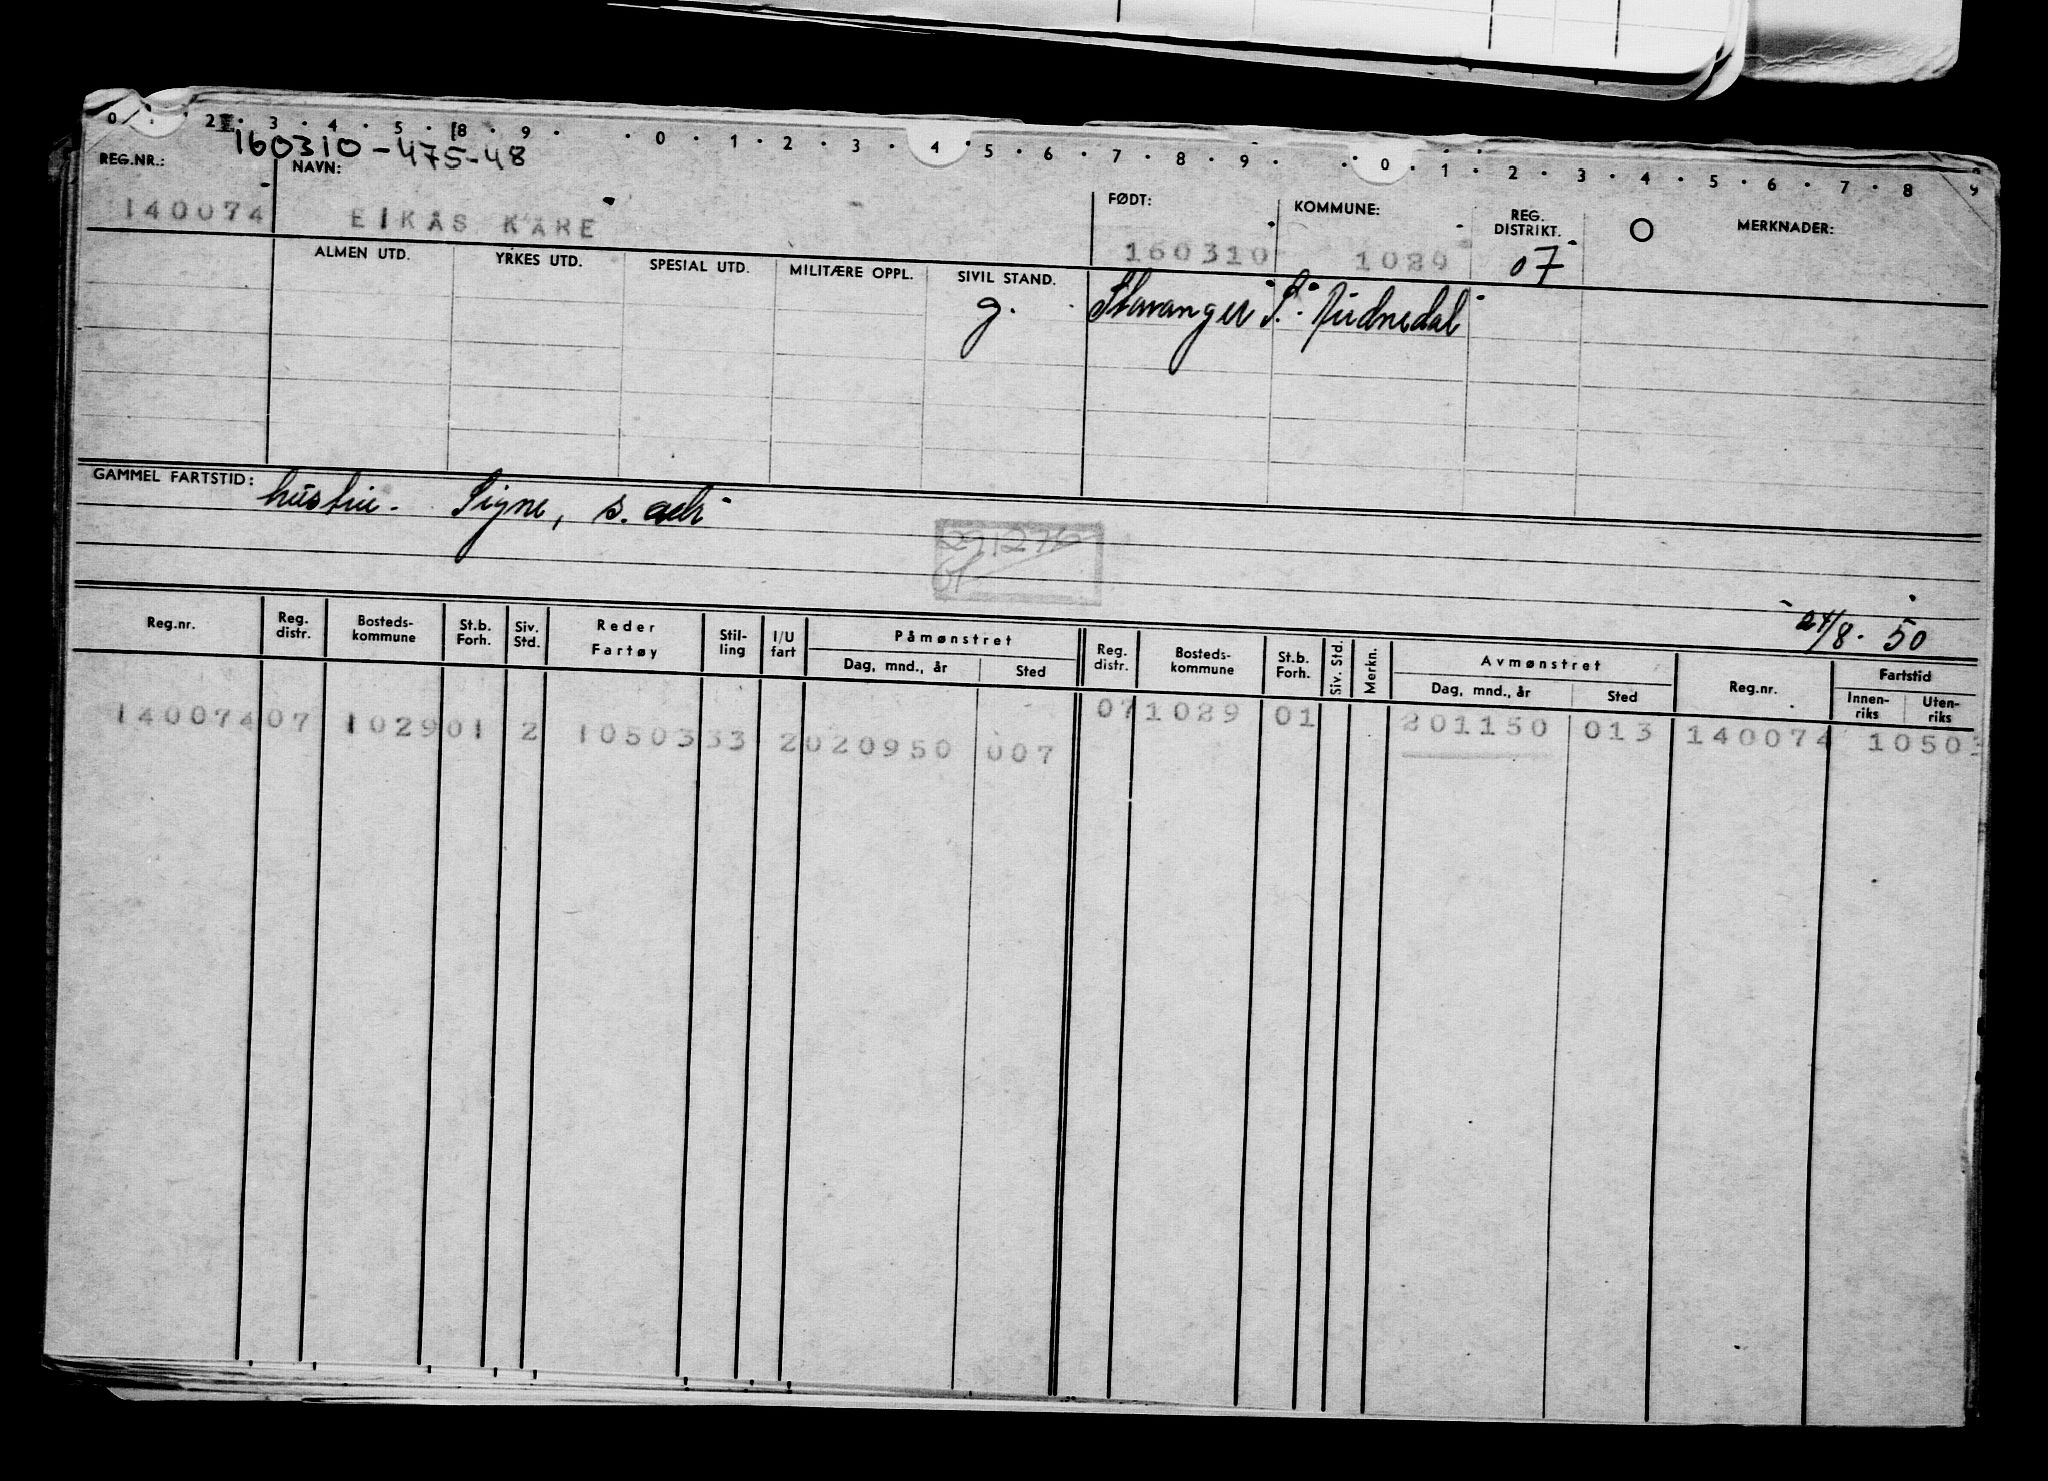 0 · 2 · 3 · 4 · 5 · 8 · 9 · · 0 · 1 · 2 · 3 · 4 · 5 · 6 · 7 · 8 · 9 · · 0 · 1 · 2 · 3 · 4 · 5 · 6 · 7 · 8 · 9
160310-475-48
REG.NR.: NAVN: FØDT: KOMMUNE: REG. DISTRIKT. MERKNADER:
140074 EIKÅS KÅRE 160310 1029 07
ALMEN UTD. YRKES UTD. SPESIAL UTD. MILITÆRE OPPL. SIVIL STAND.
g. Stavanger S. Audnedal
GAMMEL FARTSTID: hustru. Signe, s. adr
291276
24/8. 50
Reg.nr. Reg. distr. Bosteds-kommune St.b. Forh. Siv. Std. Reder Fartøy Stil-ling I/U fart Påmønstret Reg. distr. Bosteds-kommune St.b. Forh. Siv. Std. Merkn. Avmønstret Reg.nr. Fartstid
Dag, mnd., år Sted Dag, mnd., år Sted Innen-riks Uten-riks
140074 07 1029 01 2 10503 33 2 020950 007 07 1029 01 201150 013 140074 1050